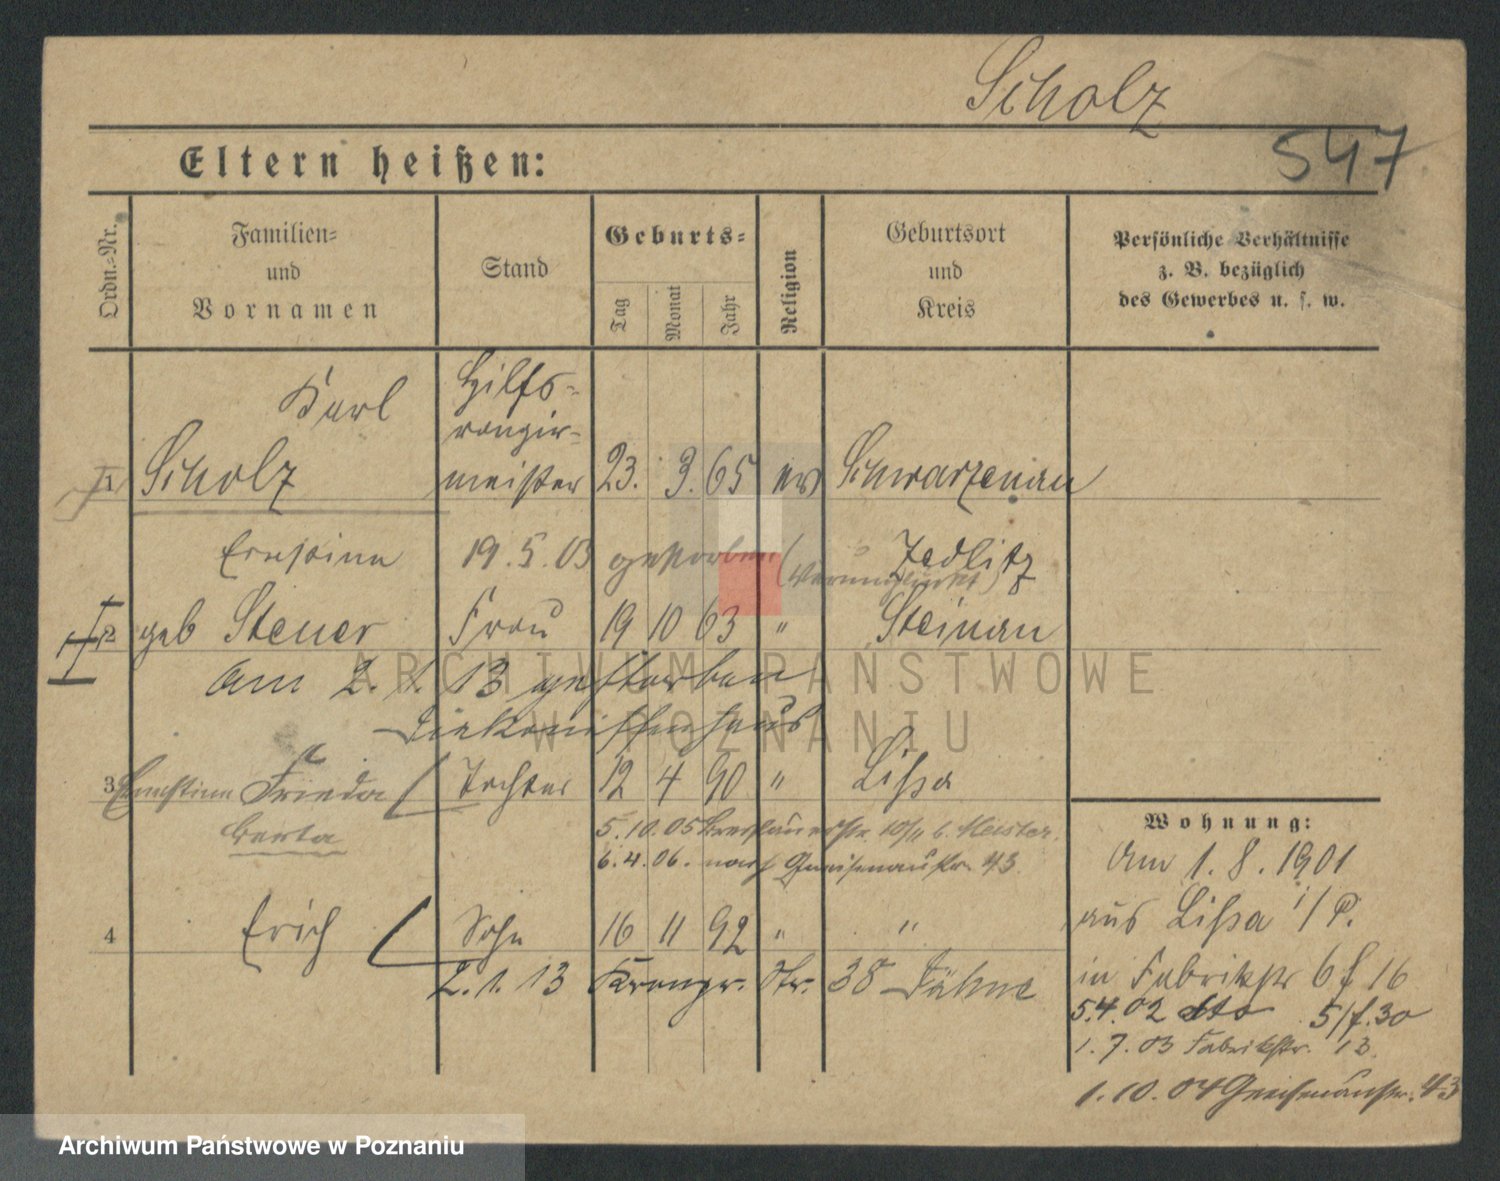 Scholz
547
Eltern heißen:
Ordn.-Nr.
Familien- und Vornamen
Stand
Geburts-
Tag
Monat
Jahr
Religion
Geburtsort und Kreis
Persönliche Verhältnisse
z. B. bezüglich
des Gewerbes u. s. w.
Karl Hilfs-
rangir-
1 Scholz meister 23. 3. 65 ev Schwarzenau
Ernstine 19. 5. 03 gestorben (verunglückt) Zedlitz
2 geb Steuer Frau 19 10 63 " Steinau
am 2. 1. 13 gestorben
Diakonissenhaus
3 Ernestine Frieda Tochter 12 4 90 " Lissa
Berta
5. 10. 05 Breslauerstr. 10/11 b. Meister.
6. 4. 06. nach Gneisenaustr. 43.
4 Erich Sohn 16 11 92 " "
2. 1. 13 Kronpr. Str. 38 Dähne
Wohnung:
Am 1. 8. 1901
aus Lissa i/P.
in Fabrikstr 6 b 16
5. 4. 02 dto 30
1. 7. 03 Fabrikstr. 13.
1. 10. 04 Gneisenaustr. 43
ARCHIWUM PAŃSTWOWE
W POZNANIU
Archiwum Państwowe w Poznaniu